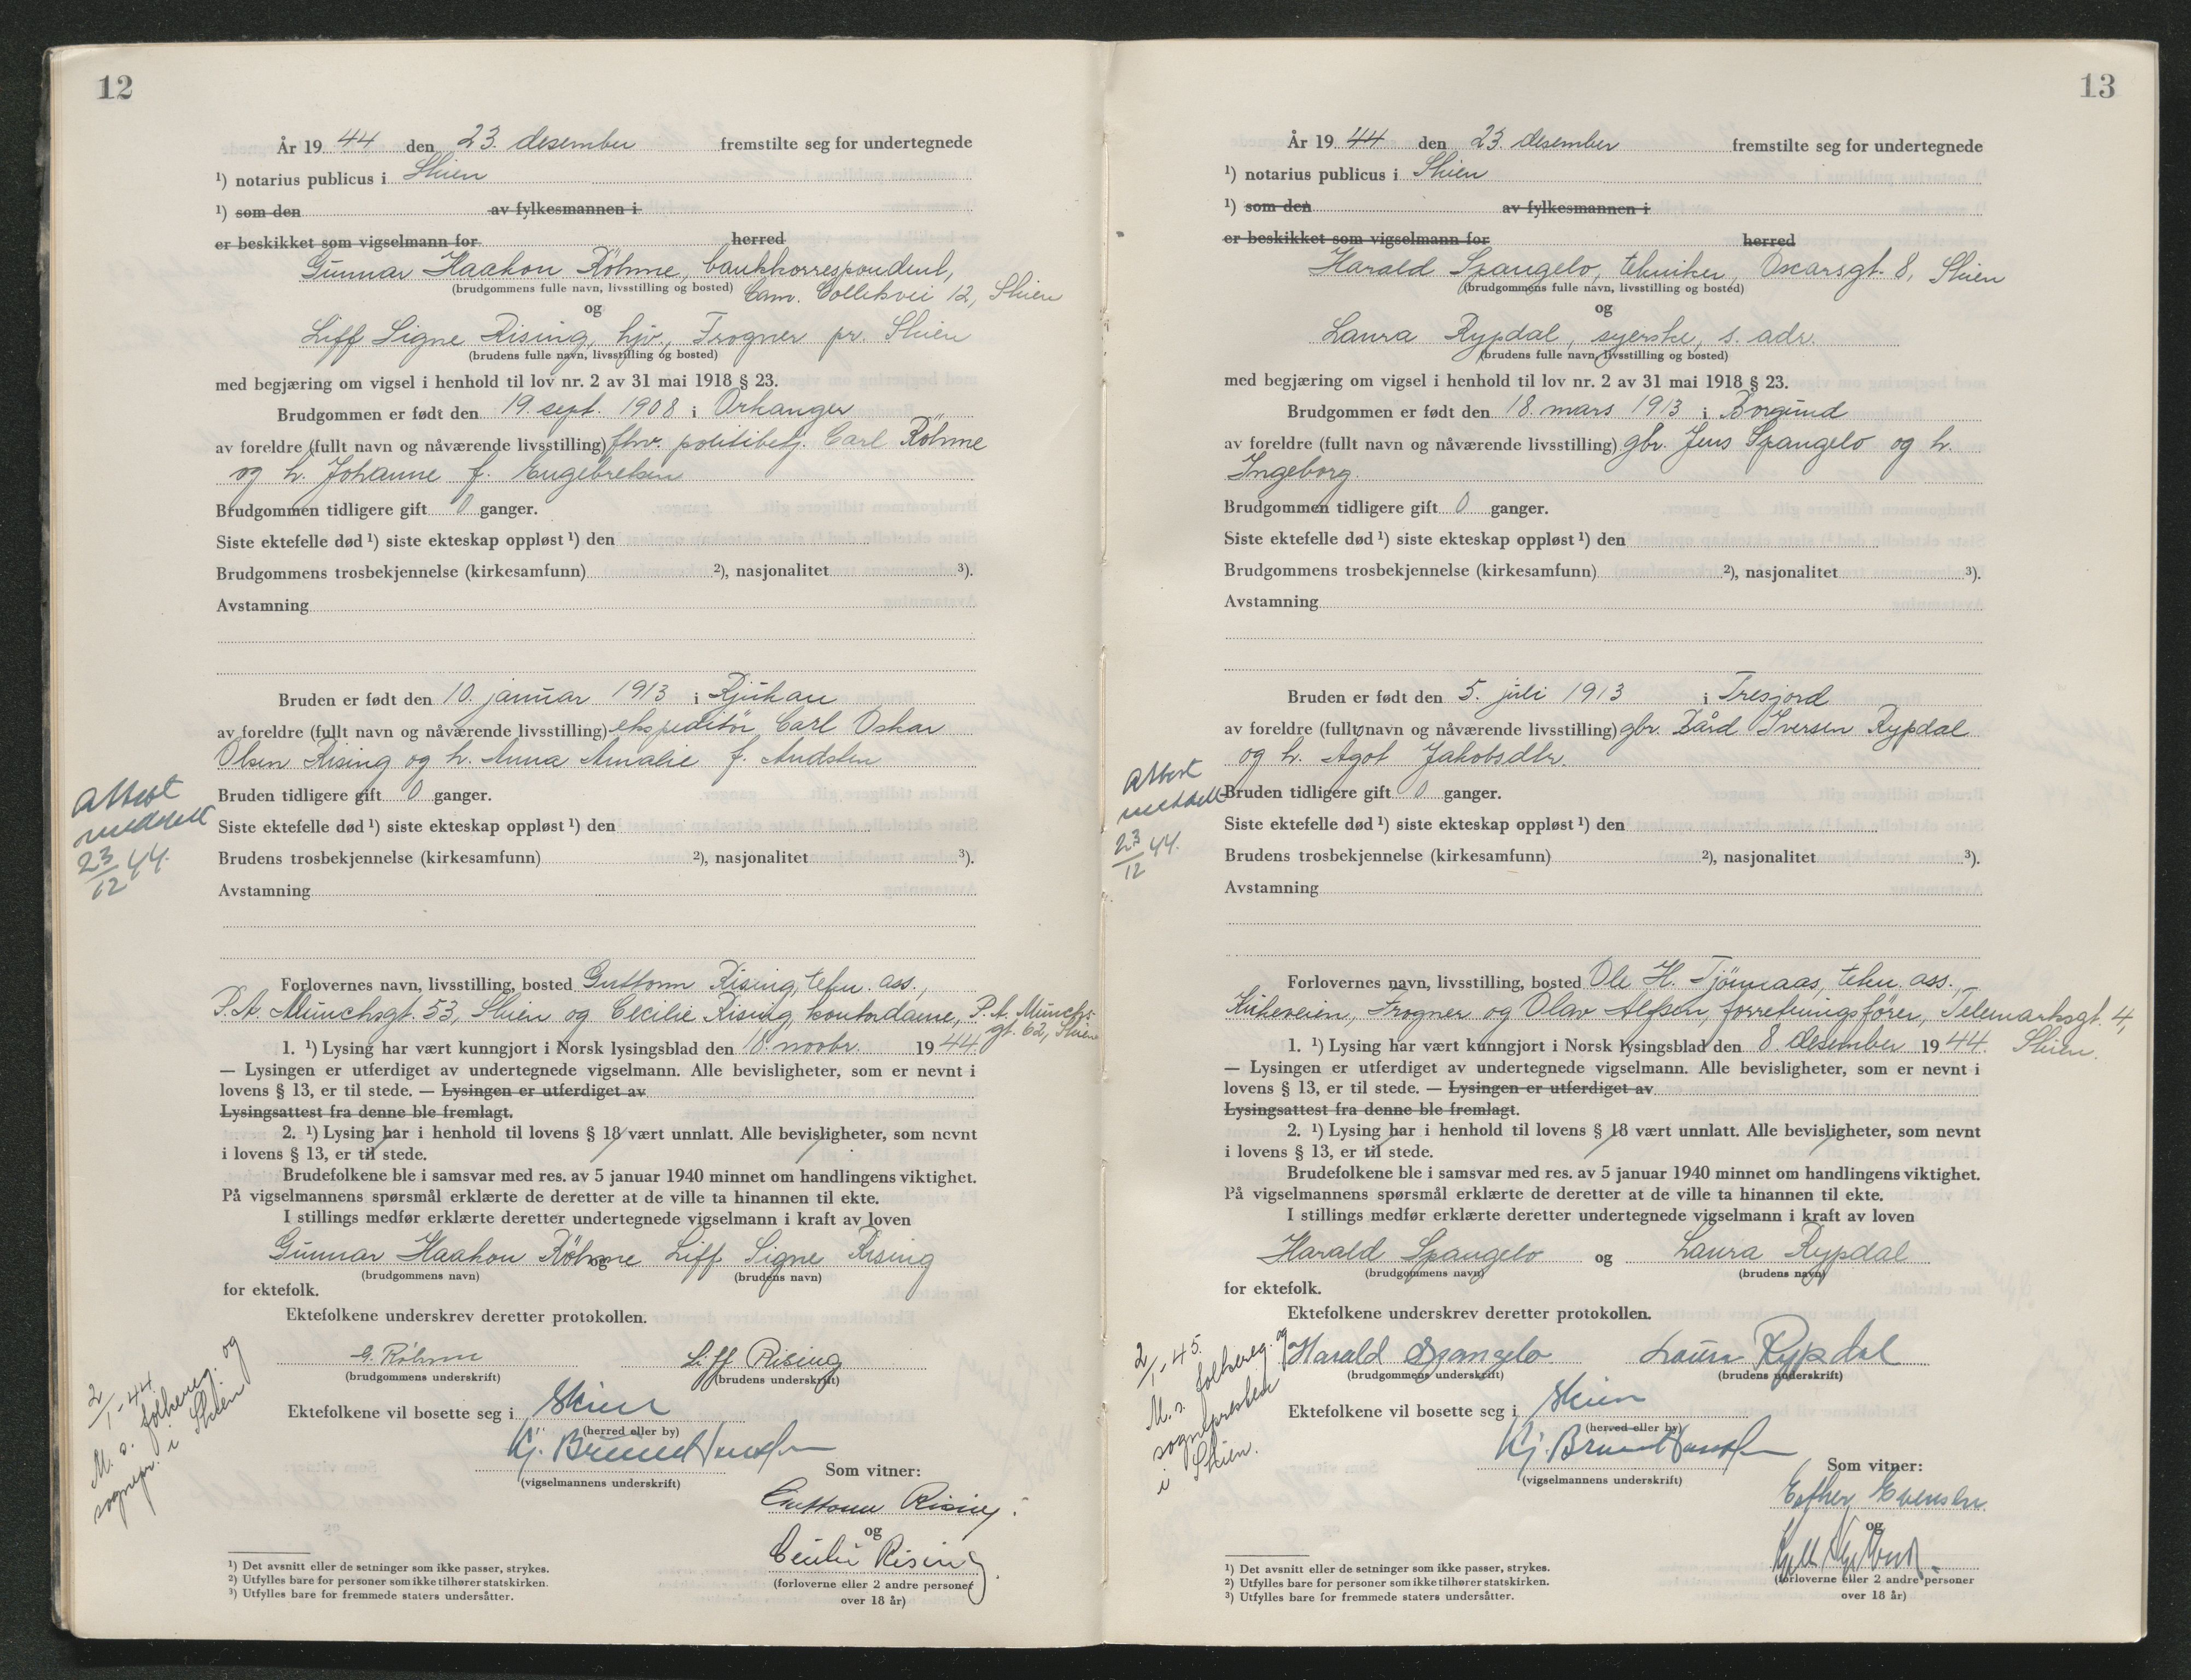 12
År 19 44 den 23. desember fremstilte seg for undertegnede
¹) notarius publicus i Skien
¹) som den av fylkesmannen i
er beskikket som vigselmann for herred
Gunnar Haakon Röhme, bankkorrespondent,
(brudgommens fulle navn, livsstilling og bosted) Cam. Colletsvei 12, Skien
og
Liff Signe Rising, hjv., Frogner pr. Skien
(brudens fulle navn, livsstilling og bosted)
med begjæring om vigsel i henhold til lov nr. 2 av 31 mai 1918 § 23.
Brudgommen er født den 19. sept. 1908 i Orkanger
av foreldre (fullt navn og nåværende livsstilling) fhv. politibetj. Carl Röhme
og h. Johanne f. Engebretsen
Brudgommen tidligere gift 0 ganger.
Siste ektefelle død ¹) siste ekteskap oppløst ¹) den
Brudgommens trosbekjennelse (kirkesamfunn) ²), nasjonalitet ³).
Avstamning
Bruden er født den 10. januar 1913 i Rjukan
av foreldre (fullt navn og nåværende livsstilling) ekspeditör Carl Oskar
Olsen Rising og h. Anna Amalie f. Audsten
Attest
meddelt
23/12 44.
Bruden tidligere gift 0 ganger.
Siste ektefelle død ¹) siste ekteskap oppløst ¹) den
Brudens trosbekjennelse (kirkesamfunn) ²), nasjonalitet ³).
Avstamning
Forlovernes navn, livsstilling, bosted Guttorm Rising, tekn. ass.,
P. A. Münchsgt. 53, Skien og Cecilie Rising, kontordame, P. A. Münchs-
gt. 62, Skien
1. ¹) Lysing har vært kunngjort i Norsk lysingsblad den 10. novbr. 19 44.
— Lysingen er utferdiget av undertegnede vigselmann. Alle bevisligheter, som er nevnt i
lovens § 13, er til stede. — Lysingen er utferdiget av
Lysingsattest fra denne ble fremlagt.
2. ¹) Lysing har i henhold til lovens § 18 vært unnlatt. Alle bevisligheter, som nevnt
i lovens § 13, er til stede.
Brudefolkene ble i samsvar med res. av 5 januar 1940 minnet om handlingens viktighet.
På vigselmannens spørsmål erklærte de deretter at de ville ta hinannen til ekte.
I stillings medfør erklærte deretter undertegnede vigselmann i kraft av loven
Gunnar Haakon Röhme og Liff Signe Rising
(brudgommens navn) (brudens navn)
for ektefolk.
Ektefolkene underskrev deretter protokollen.
G. Röhme Liff Rising
(brudgommens underskrift) (brudens underskrift)
2/1-44.
M. s. folkereg. og
sognepr. i Skien
Ektefolkene vil bosette seg i Skien
(herred eller by)
Kj. Bruun Hanssen
(vigselmannens underskrift)
Som vitner:
Guttorm Rising.
og
Cecilie Rising
(forloverne eller 2 andre personer
over 18 år)
¹) Det avsnitt eller de setninger som ikke passer, strykes.
²) Utfylles bare for personer som ikke tilhører statskirken.
³) Utfylles bare for fremmede staters undersåtter.
13
År 19 44 den 23. desember fremstilte seg for undertegnede
¹) notarius publicus i Skien
¹) som den av fylkesmannen i
er beskikket som vigselmann for herred
Harald Spangelo, tekniker, Oscarsgt. 8, Skien
(brudgommens fulle navn, livsstilling og bosted)
og
Laura Rypdal, syerske, s. adr.
(brudens fulle navn, livsstilling og bosted)
med begjæring om vigsel i henhold til lov nr. 2 av 31 mai 1918 § 23.
Brudgommen er født den 18. mars 1913 i Borgund
av foreldre (fullt navn og nåværende livsstilling) gbr. Jens Spangelo og h.
Ingeborg.
Brudgommen tidligere gift 0 ganger.
Siste ektefelle død ¹) siste ekteskap oppløst ¹) den
Brudgommens trosbekjennelse (kirkesamfunn) ²), nasjonalitet ³).
Avstamning
Bruden er født den 5. juli 1913 i Tresjord
av foreldre (fullt navn og nåværende livsstilling) gbr. Bård Iversen Rypdal
og h. Agot Jakobsdtr.
Attest
meddelt
23/12 44.
Bruden tidligere gift 0 ganger.
Siste ektefelle død ¹) siste ekteskap oppløst ¹) den
Brudens trosbekjennelse (kirkesamfunn) ²), nasjonalitet ³).
Avstamning
Forlovernes navn, livsstilling, bosted Ole H. Tjönnaas, tekn. ass.,
Kirkeveien, Frogner og Olav Alfsen, forretningsförer, Telemarksgt. 4,
Skien.
1. ¹) Lysing har vært kunngjort i Norsk lysingsblad den 8. desember 19 44.
— Lysingen er utferdiget av undertegnede vigselmann. Alle bevisligheter, som er nevnt i
lovens § 13, er til stede. — Lysingen er utferdiget av
Lysingsattest fra denne ble fremlagt.
2. ¹) Lysing har i henhold til lovens § 18 vært unnlatt. Alle bevisligheter, som nevnt
i lovens § 13, er til stede.
Brudefolkene ble i samsvar med res. av 5 januar 1940 minnet om handlingens viktighet.
På vigselmannens spørsmål erklærte de deretter at de ville ta hinannen til ekte.
I stillings medfør erklærte deretter undertegnede vigselmann i kraft av loven
Harald Spangelo og Laura Rypdal
(brudgommens navn) (brudens navn)
for ektefolk.
Ektefolkene underskrev deretter protokollen.
Harald Spangelo Laura Rypdal
(brudgommens underskrift) (brudens underskrift)
2/1-45.
M. s. folkereg. og
sogneprestene
i Skien.
Ektefolkene vil bosette seg i Skien
(herred eller by)
Kj. Bruun Hanssen
(vigselmannens underskrift)
Som vitner:
Esther Evensen.
og
(forloverne eller 2 andre personer
over 18 år)
¹) Det avsnitt eller de setninger som ikke passer, strykes.
²) Utfylles bare for personer som ikke tilhører statskirken.
³) Utfylles bare for fremmede staters undersåtter.